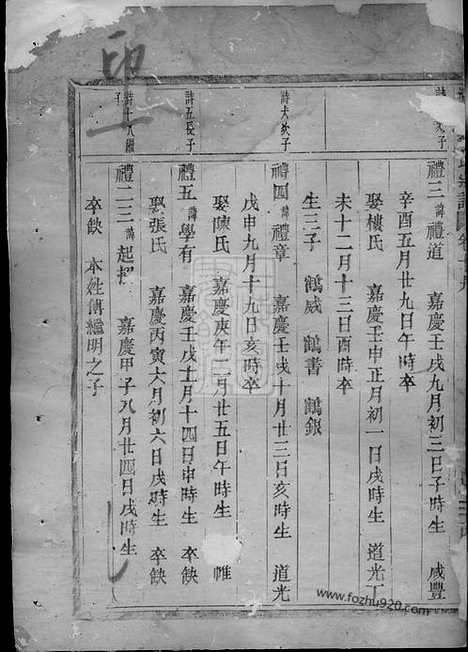 禮三 諱禮道 嘉慶壬戌九月初三日子時生 咸豐
辛酉五月廿九日午時卒
娶樓氏 嘉慶壬申正月初一日戌時生 道光丁
未十二月十三日酉時卒
生三子 鶴威 鶴書 鶴銀
詩大次子
禮四 諱禮章 嘉慶壬戌十月廿三日亥時生 道光
戊申九月十九日亥時卒
娶陳氏 嘉慶庚午二月廿五日午時生
詩五長子
禮五 諱學有 嘉慶壬戌十一月十四日申時生 卒缺
娶張氏 嘉慶丙寅六月初六日戌時生 卒缺
詩十八繼子
禮二三 諱起 嘉慶甲子八月廿四日戌時生
卒缺 本姓傅繼明之子
www.fozhu920.com